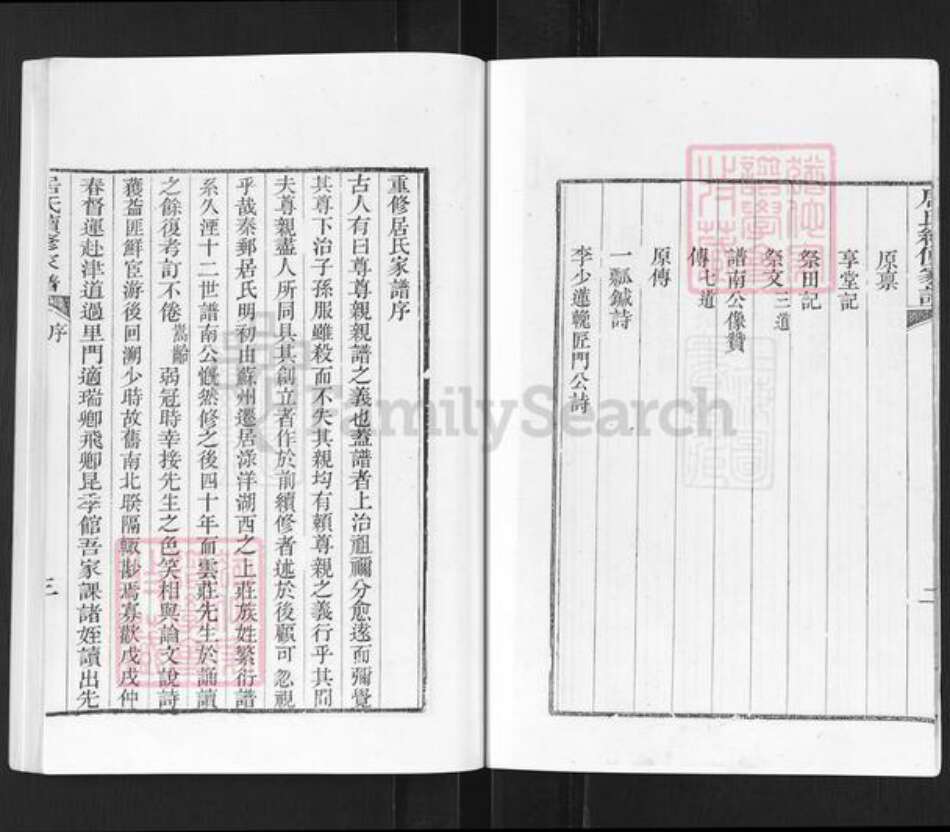 原禀
享堂記
祭田記
祭文三道
譜南公像贊
傳七道
原傳
一瓢鍼詩
李少蓮輓匠門公詩
二
重修居氏家譜序
古人有曰尊尊親親譜之義也蓋譜者上治祖禰分愈遠而彌覺
其尊下治子孫服雖殺而不失其親均有賴尊親之義行乎其間
夫尊親盡人所同具其創立者作於前續修者述於後顧可忽視
乎哉秦郵居氏明初由蘇州遷居淥洋湖西之上莊族姓繁衍譜
系久湮十二世譜南公慨然修之後四十年而雲莊先生於誦讀
之餘復考訂不倦嵩齡弱冠時幸接先生之色笑相與論文說詩
獲益匪鮮宦游後回溯少時故舊南北睽隔輒尠焉寡歡戊戌仲
春督運赴津道過里門適瑞卿飛卿昆季館吾家課諸姪讀出先
居氏續修家譜
序
三
FamilySearch